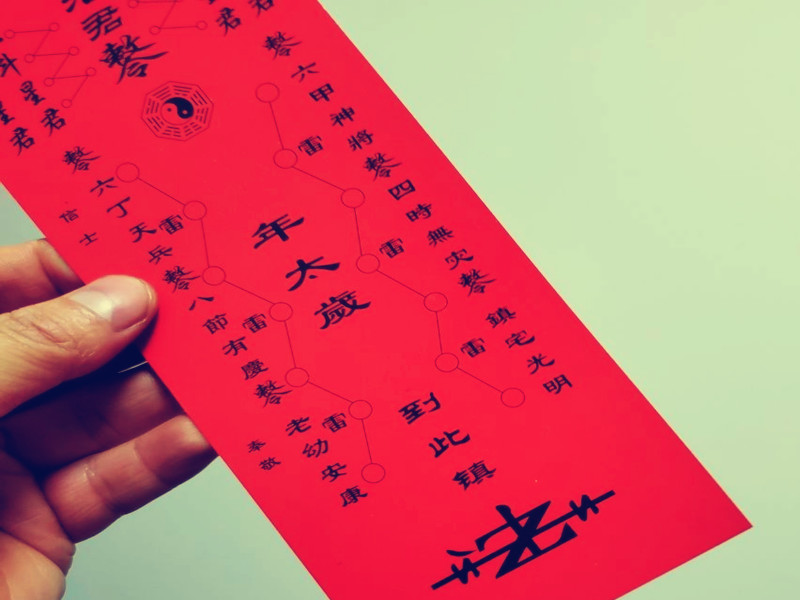 君
君
君
星君
斗
星君
六甲神將
四時無災
鎮宅光明
雷
雷
雷
年太歲
到此鎮
雷
雷
雷
六丁天兵
八節有慶
老幼安康
信士
奉敬